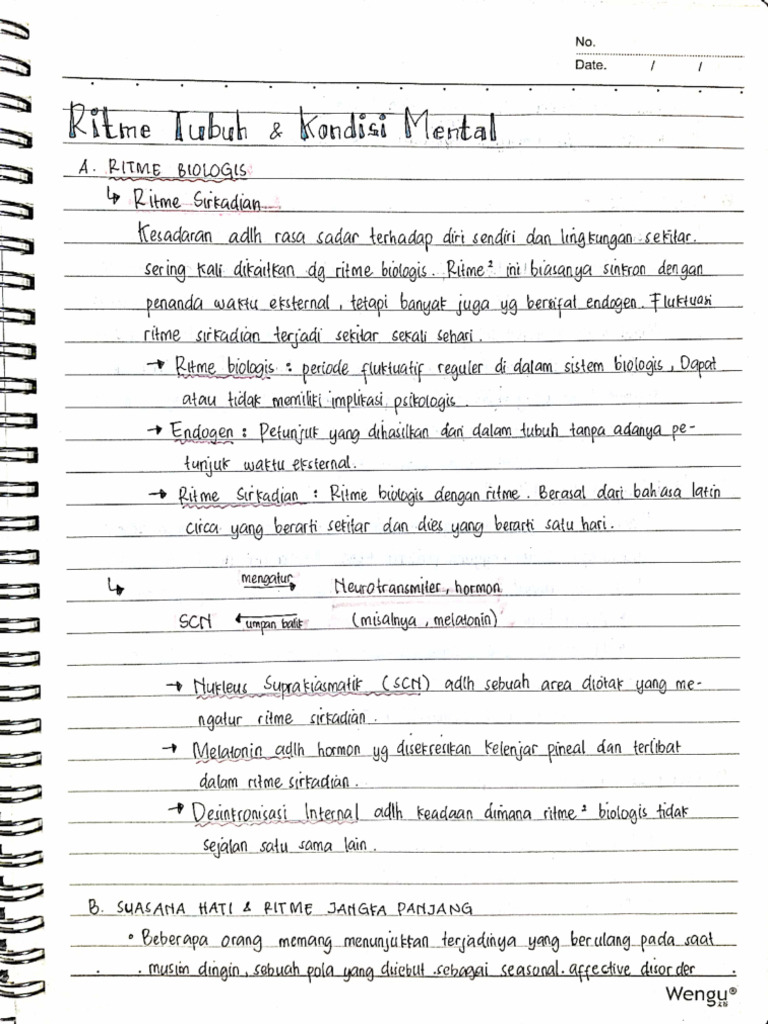 No.
Date. / /
Ritme Tubuh & Kondisi Mental
A. RITME BIOLOGIS
↳ Ritme Sirkadian
Kesadaran adlh rasa sadar terhadap diri sendiri dan lingkungan sekitar.
sering kali dikaitkan dg ritme biologis. Ritme² ini biasanya sinkron dengan
penanda waktu eksternal, tetapi banyak juga yg bersifat endogen. Fluktuasi
ritme sirkadian terjadi sekitar sekali sehari.
→ Ritme biologis : periode fluktuatif reguler di dalam sistem biologis, Dapat
atau tidak memiliki implikasi psikologis.
→ Endogen : Petunjuk yang dihasilkan dari dalam tubuh tanpa adanya pe-
tunjuk waktu eksternal.
→ Ritme Sirkadian : Ritme biologis dengan ritme. Berasal dari bahasa latin
circa yang berarti sekitar dan dies yang berarti satu hari.
↳ mengatur → Neurotransmiter, hormon
SCN ← umpan balik (misalnya, melatonin)
→ Nukleus Suprakiasmatik (SCN) adlh sebuah area diotak yang me-
ngatur ritme sirkadian.
→ Melatonin adlh hormon yg disekresikan kelenjar pineal dan terlibat
dalam ritme sirkadian.
→ Desinkronisasi Internal adlh keadaan dimana ritme² biologis tidak
sejalan satu sama lain.
B. SUASANA HATI & RITME JANGKA PANJANG
• Beberapa orang memang menunjukkan terjadinya yang berulang pada saat
musim dingin, sebuah pola yang disebut sebagai seasonal affective disorder
Wengu®